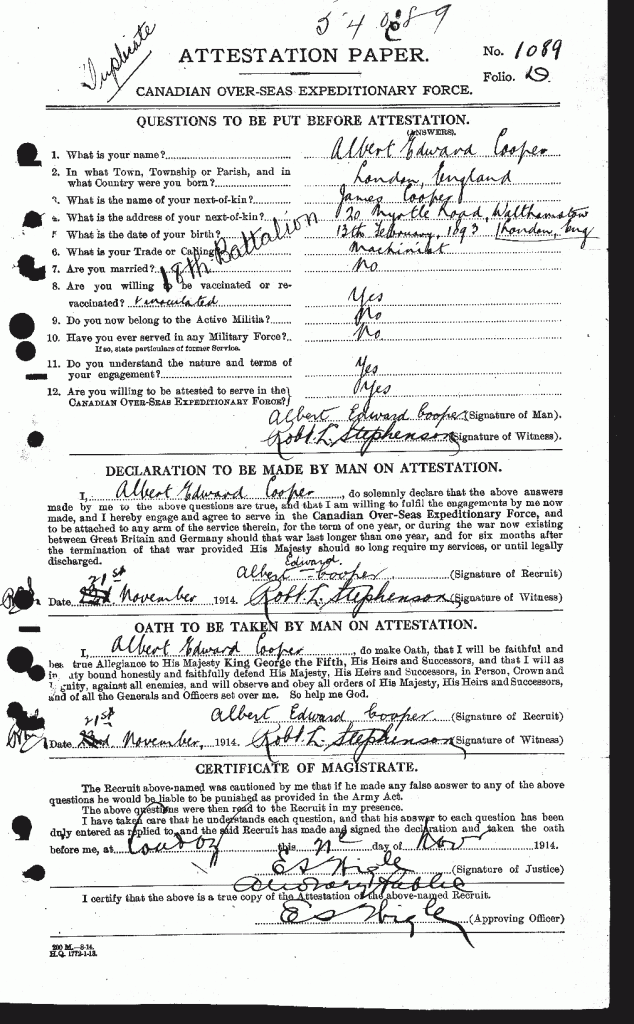 Duplicate
54089
ATTESTATION PAPER.
No. 1089
Folio. D
CANADIAN OVER-SEAS EXPEDITIONARY FORCE.
QUESTIONS TO BE PUT BEFORE ATTESTATION.
(ANSWERS).
1. What is your name? Albert Edward Cooper
2. In what Town, Township or Parish, and in
what Country were you born? London, England
3. What is the name of your next-of-kin? James Cooper
4. What is the address of your next-of-kin? 20 Myrtle Road, Walthamstow
London, Eng
5. What is the date of your birth? 13th February, 1893
6. What is your Trade or Calling? Machinist
18th Battalion
7. Are you married? No
8. Are you willing to be vaccinated or re-
vaccinated? & inoculated Yes
9. Do you now belong to the Active Militia? No
10. Have you ever served in any Military Force? No
If so, state particulars of former Service.
11. Do you understand the nature and terms of
your engagement? Yes
12. Are you willing to be attested to serve in the
CANADIAN OVER-SEAS EXPEDITIONARY FORCE? Yes
Albert Edward Cooper (Signature of Man).
Robt. L. Stephenson (Signature of Witness).
DECLARATION TO BE MADE BY MAN ON ATTESTATION.
I, Albert Edward Cooper, do solemnly declare that the above answers
made by me to the above questions are true, and that I am willing to fulfil the engagements by me now
made, and I hereby engage and agree to serve in the Canadian Over-Seas Expeditionary Force, and
to be attached to any arm of the service therein, for the term of one year, or during the war now existing
between Great Britain and Germany should that war last longer than one year, and for six months after
the termination of that war provided His Majesty should so long require my services, or until legally
discharged.
Edward
Albert Cooper (Signature of Recruit)
21st
Date November 1914. Robt. L. Stephenson (Signature of Witness)
OATH TO BE TAKEN BY MAN ON ATTESTATION.
I, Albert Edward Cooper, do make Oath, that I will be faithful and
bea true Allegiance to His Majesty King George the Fifth, His Heirs and Successors, and that I will as
in ty bound honestly and faithfully defend His Majesty, His Heirs and Successors, in Person, Crown and
gnity, against all enemies, and will observe and obey all orders of His Majesty, His Heirs and Successors,
and of all the Generals and Officers set over me. So help me God.
Albert Edward Cooper (Signature of Recruit)
21st
Date November, 1914. Robt. L. Stephenson (Signature of Witness)
CERTIFICATE OF MAGISTRATE.
The Recruit above-named was cautioned by me that if he made any false answer to any of the above
questions he would be liable to be punished as provided in the Army Act.
The above questions were then read to the Recruit in my presence.
I have taken care that he understands each question, and that his answer to each question has been
duly entered as replied to, and the said Recruit has made and signed the declaration and taken the oath
before me, at London this day of Nov 1914.
E S Wigle (Signature of Justice)
a Notary Public
I certify that the above is a true copy of the Attestation of the above-named Recruit.
E S Wigle (Approving Officer)
200 M.—8-14.
H.Q. 1772-1-13.